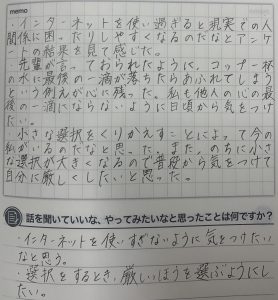 memo
・インターネットを使い過ぎると現実での人
間係に困ったりしやすくなるのだなとアンケー
トの結果を見て感じた。
・先輩が言っておられたように、コップ一杯
の水に最後の一滴が落ちたらあふれてしまう
という例えが心に残った。私も他人の心の最
後の一滴にならないように日頃から気をつけ
たい。
・小さな選択をくりかえすことによって今の
私がいるのだなと思った。また、のちに小さ
な選択が大きくなるので普段から気をつけて
自分に厳しくしたいと思った。
話を聞いていいな、やってみたいなと思ったことは何ですか？
・インターネットを使いすぎないように気をつけたい
なと思う。
・選択をするとき、厳しいほうを選ぶようにし
たい。